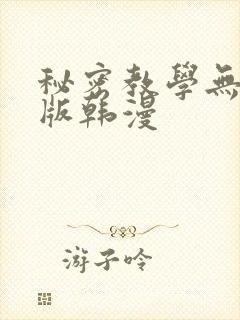 秘密教學無
版韩漫
游子吟